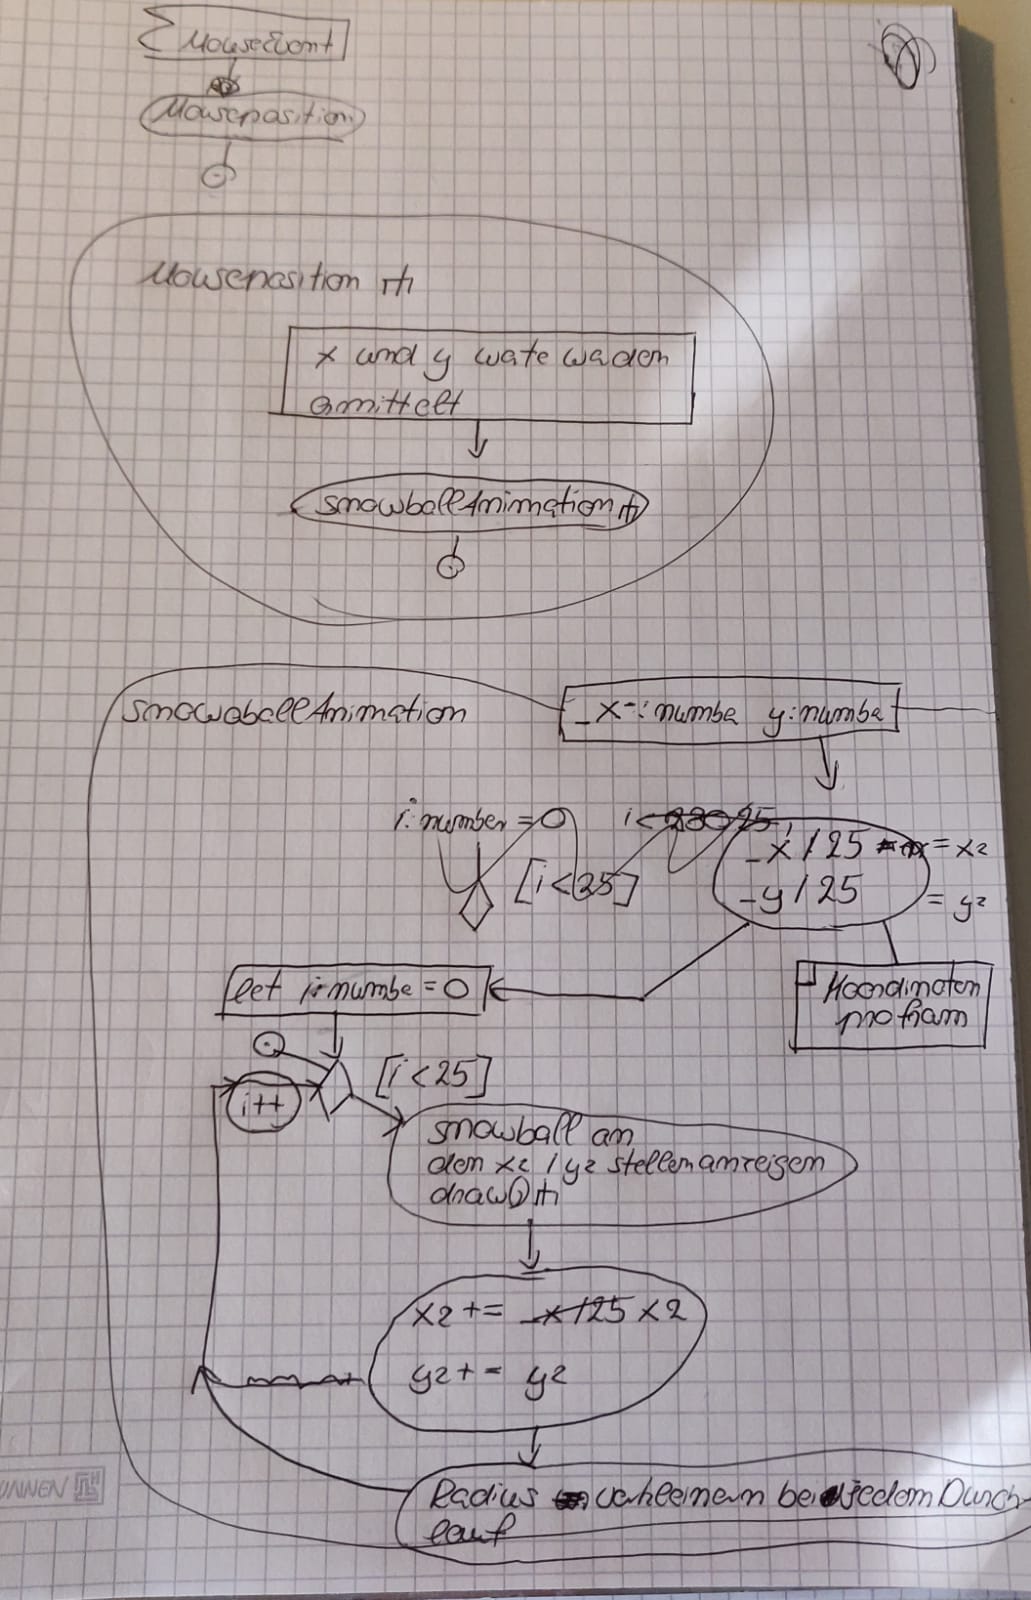 MouseEvent
Mouseposition
Mouseposition
x und y wate waden
emittelt
snowballAnimation
snowaballAnimation
_x : numbe y: numbe
i: number = 0 i<
[i<25]
_x / 25 = x2
_y / 25 = y2
let i: numbe = 0
Koordinaten
pro Fram
[i<25]
i++
snowball an
den x2 / y2 stellen anzeigen
draw()
x2 += _x/25 x2
y2 += y2
Radius verkleinern bei jedem Durch
lauf
UNNEN